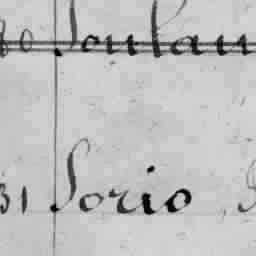 80 Soulan
31 Sorio